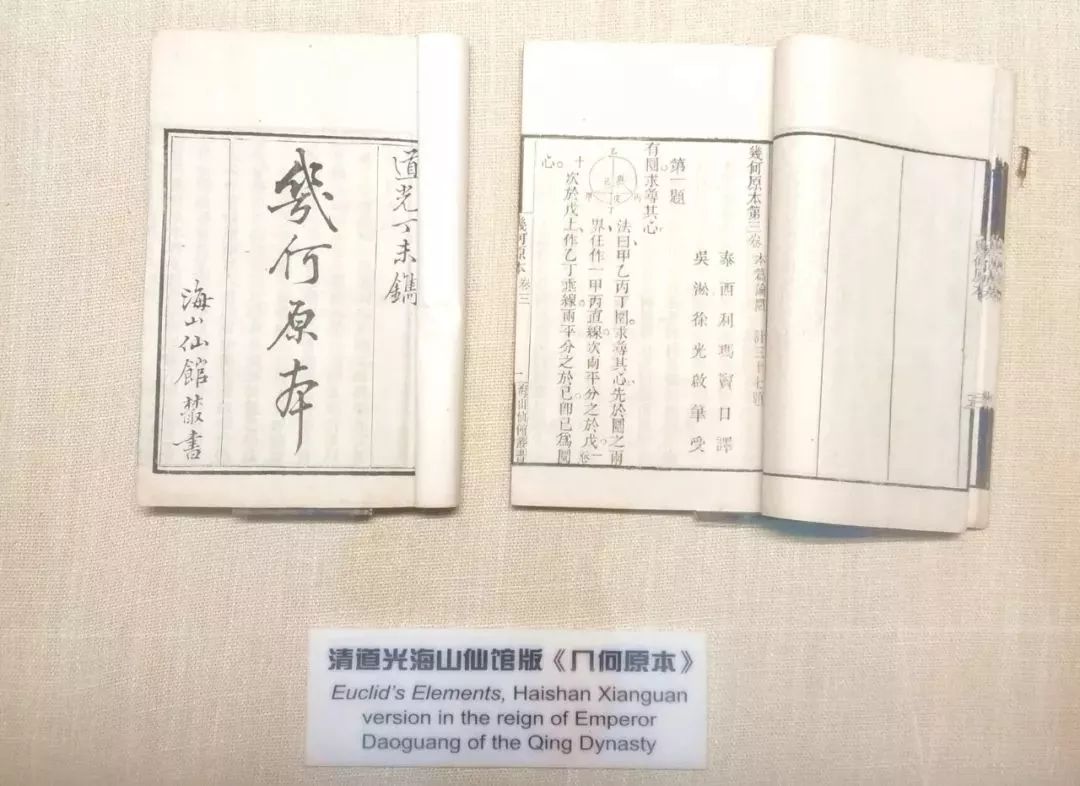 道光丁未鐫
幾何原本
海山仙館叢書
幾何原本第三卷 本篇論圜 計三十七題
泰西利瑪竇口譯
吳淞徐光啟筆受
第一題
有圜求尋其心
法曰甲乙丙丁圜求尋其心先於圜之兩
界任作一甲丙直線次兩平分之於戊一卷
次於戊上作乙丁垂線兩平分之於己即己為圜
十
心
幾何原本 卷三
一
海山仙館叢書
清道光海山仙馆版《几何原本》
Euclid's Elements, Haishan Xianguan
version in the reign of Emperor
Daoguang of the Qing Dynasty